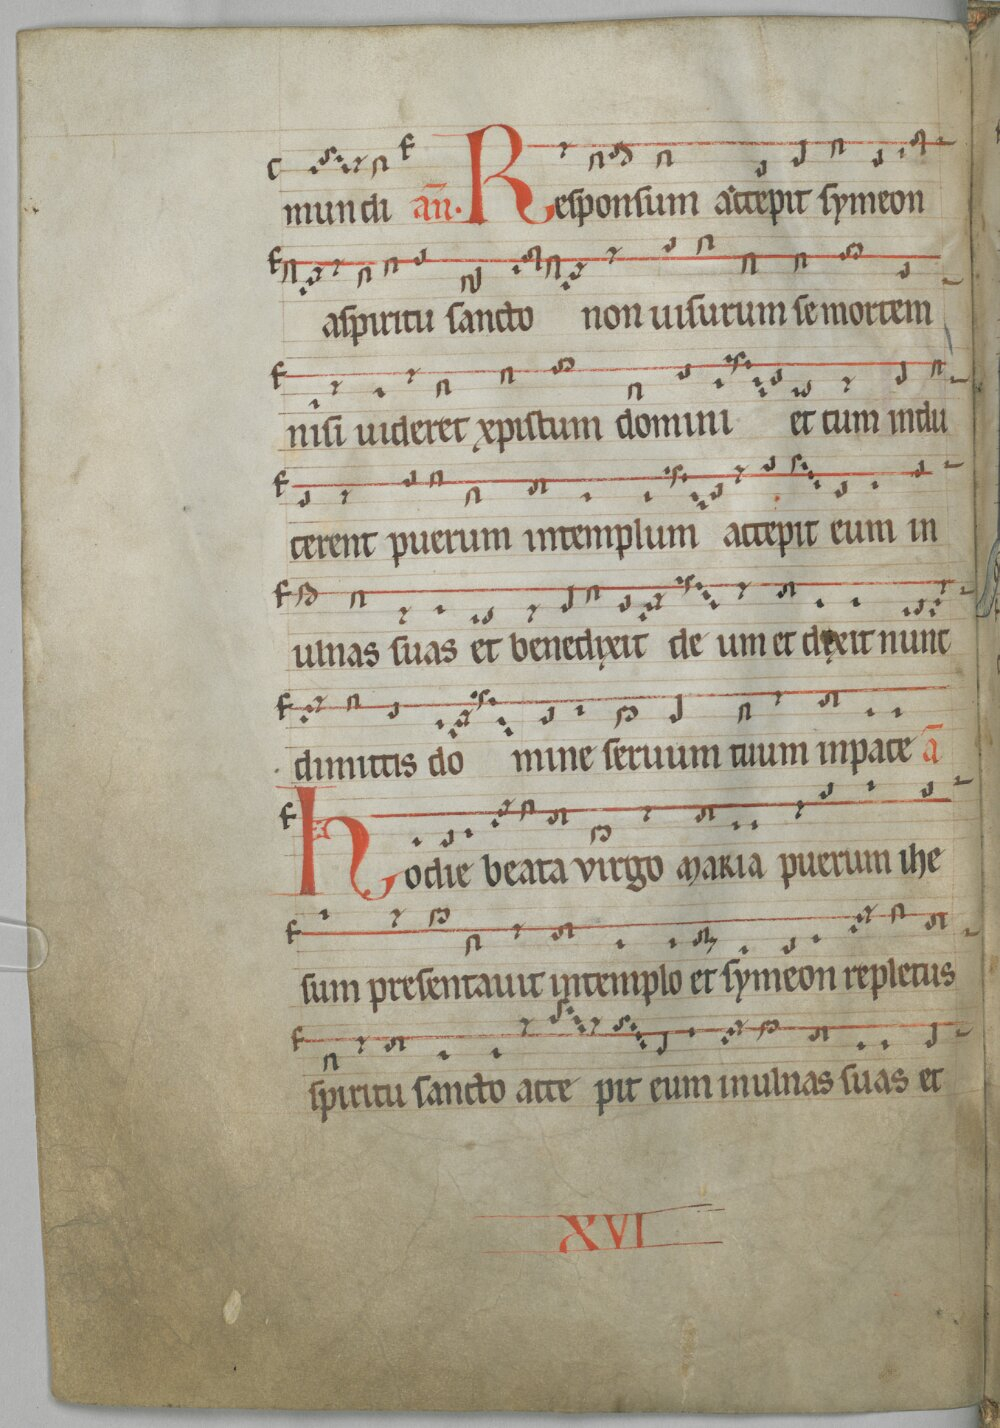 mundi añ. Responsum accepit symeon
aspiritu sancto non uisurum se mortem
nisi uideret xpistum domini et cum indu
cerent puerum intemplum accepit eum in
ulnas suas et benedixit de um et dixit nunc
dimittis do mine seruum tuum inpace ā
Hodie beata virgo maria puerum ihe
sum presentauit intemplo et symeon repletus
spiritu sancto acce pit eum inulnas suas et
XVI